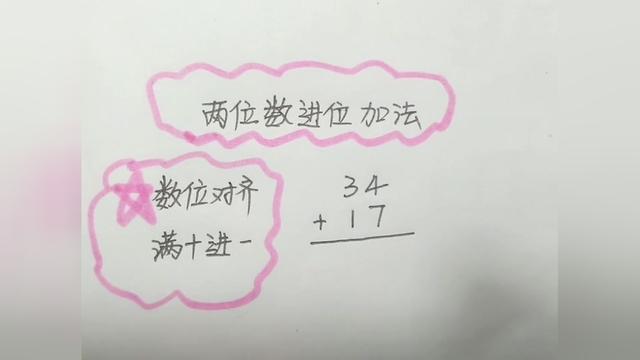 两位数进位加法
数位对齐
满十进一
34
+ 17